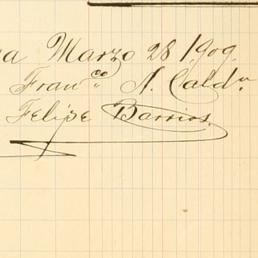 a Marzo 28 1909.
Fran.co N. Caldn
Felipe Barrios.